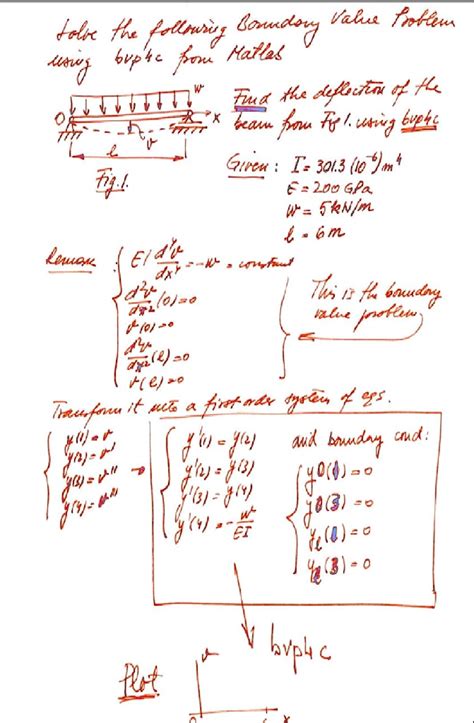 Solve the following Boundary Value Problem
using bvp4c from Matlab
w
O
x
v
l
Fig.1.
Find the deflection of the
beam from Fig 1. using bvp4c
Given: I = 301.3 (10⁻⁶) m⁴
E = 200 GPa
w = 5 kN/m
l = 6 m
Remark
EI d⁴v/dx⁴ = -w = constant
d²v/dx² (0) = 0
v(0) = 0
d²v/dx² (l) = 0
v(l) = 0
This is the boundary
value problem
Transform it into a first order system of eqs.
y(1) = v
y(2) = v'
y(3) = v''
y(4) = v'''
y'(1) = y(2)
y'(2) = y(3)
y'(3) = y(4)
y'(4) = -w/EI
and boundary cond:
y0(1) = 0
y0(3) = 0
yl(1) = 0
yl(3) = 0
bvp4c
Plot
v
0
x